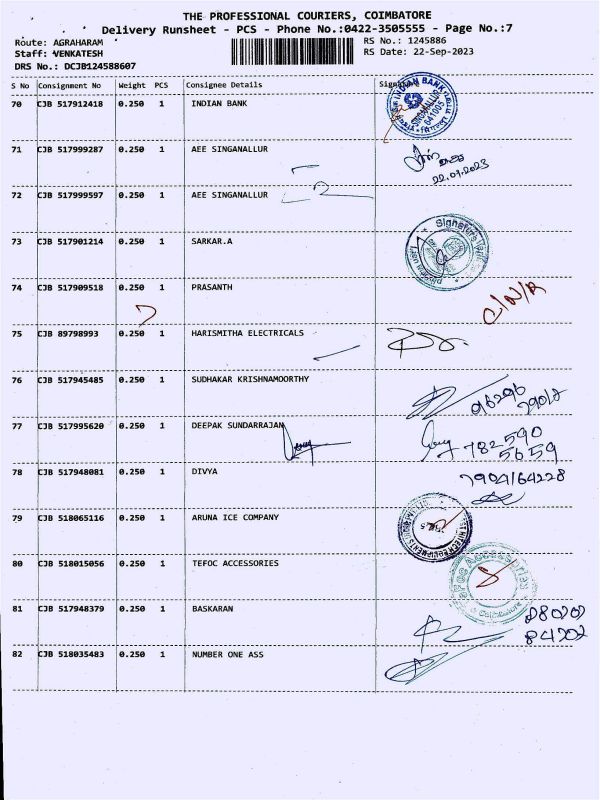 THE PROFESSIONAL COURIERS, COIMBATORE
Delivery Runsheet - PCS - Phone No.:0422-3505555 - Page No.:7
Route: AGRAHARAM
RS No.: 1245886
Staff: VENKATESH
RS Date: 22-Sep-2023
DRS No.: DCJB124588607
S No Consignment No Weight PCS Consignee Details
70 CJB 517912418 0.250 1 INDIAN BANK
INDIAN BANK
SINGANALLUR
641005
71 CJB 517999287 0.250 1 AEE SINGANALLUR
22.09.2023
72 CJB 517999597 0.250 1 AEE SINGANALLUR
73 CJB 517901214 0.250 1 SARKAR.A
74 CJB 517909518 0.250 1 PRASANTH
C/N/R
75 CJB 89798993 0.250 1 HARISMITHA ELECTRICALS
76 CJB 517945485 0.250 1 SUDHAKAR KRISHNAMOORTHY
96296
77 CJB 517995620 0.250 1 DEEPAK SUNDARRAJAN
782590
5659
78 CJB 517948081 0.250 1 DIVYA
7904164228
79 CJB 518065116 0.250 1 ARUNA ICE COMPANY
80 CJB 518015056 0.250 1 TEFOC ACCESSORIES
Tefoc Accessories
Coimbatore
81 CJB 517948379 0.250 1 BASKARAN
84202
82 CJB 518035483 0.250 1 NUMBER ONE ASS